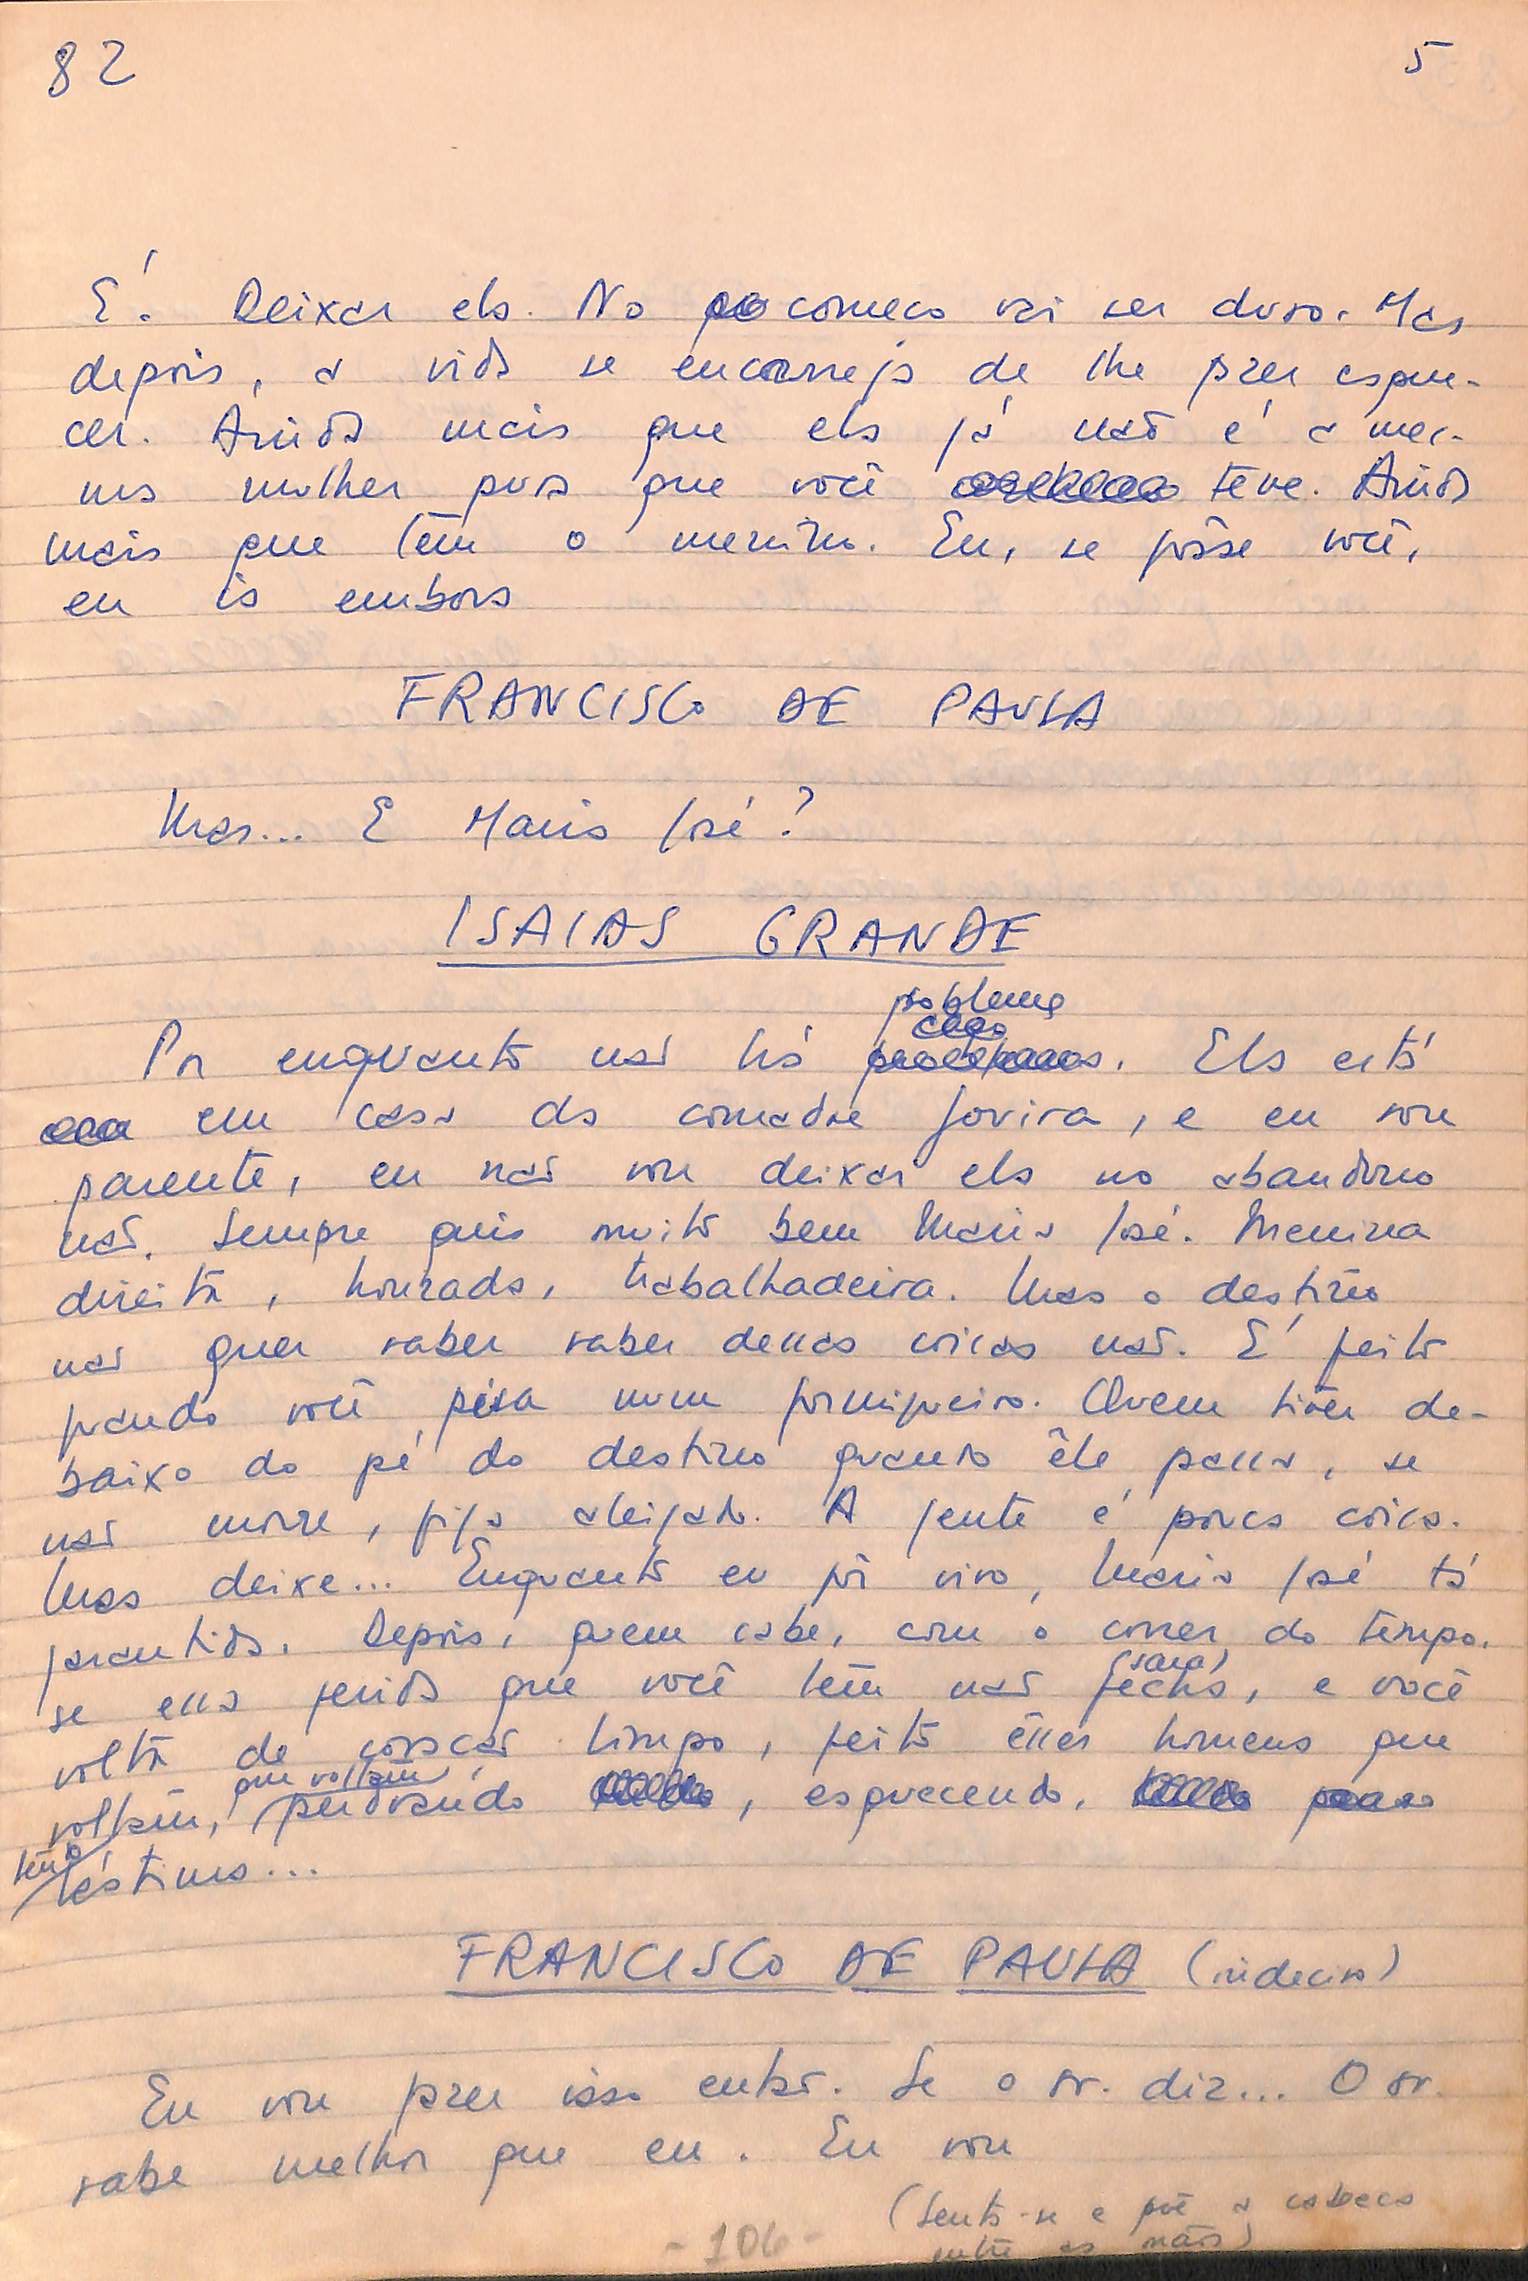 82 5
É. Deixar ela. No começo vai ser duro. Mas
depois, a vida se encarrega de lhe fazer esque-
cer. Ainda mais que ela já não é a mes-
ma mulher pura que você teve. Ainda
mais que têm o menino. Eu, se fôsse você,
eu ia embora
FRANCISCO DE PAULA
Mas... E Maria José?
ISAIAS GRANDE
problema
Por enquanto não há . Ela está
em casa da comadre Jovira, e eu sou
parente, eu não vou deixar ela no abandono
não. Sempre quis muito bem Maria José. Menina
direita, honrada, trabalhadeira. Mas o destino
não quer saber saber dessas coisas não. É feito
quando você pisa num formigueiro. Quem tiver de-
baixo do pé do destino quando êle passa, se
não morre, fica aleijado. A gente é pouca coisa.
Mas deixe... Enquanto eu fôr vivo, Maria José tá
garantida. Depois, quem sabe, com o correr do tempo.
(sara)
se essa ferida que você têm não fecha, e você
volta de coração limpo, feito êsses homens que
que voltam,
voltam, perdoando , esquecendo,
lástima...
FRANCISCO DE PAULA (indeciso)
Eu vou fazer isso então. Se o sr. diz... O sr.
sabe melhor que eu. Eu vou
(Senta-se e põe a cabeça
entre as mãos)
- 106 -